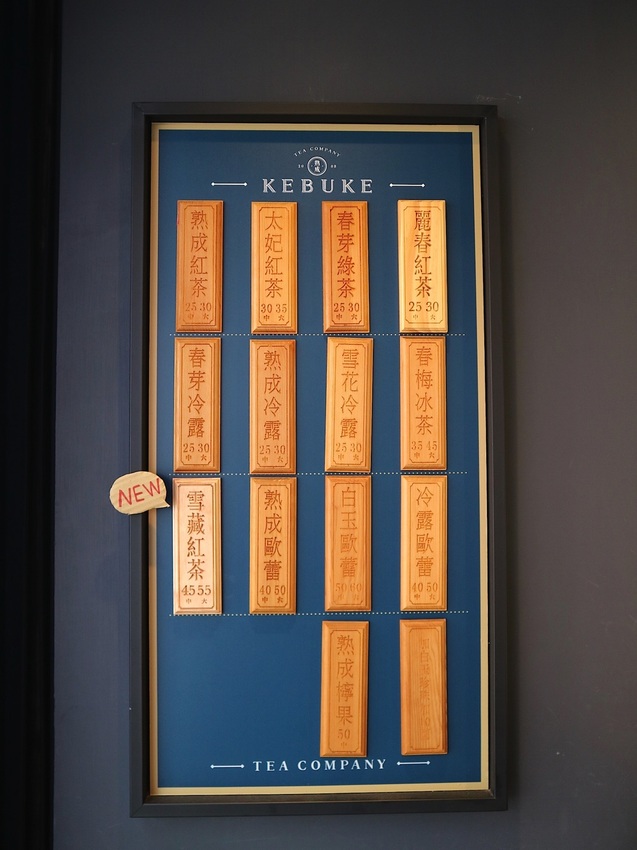 TEA COMPANY
熟成
KEBUKE
熟成紅茶
25 30
中 大
太妃紅茶
30 35
中 大
春芽綠茶
25 30
中 大
麗春紅茶
25 30
中 大
春芽冷露
25 30
中 大
熟成冷露
25 30
中 大
雪花冷露
25 30
中 大
春梅冰茶
35 45
中 大
NEW
雪藏紅茶
45 55
中 大
熟成歐蕾
40 50
中 大
白玉歐蕾
50 60
中 大
冷露歐蕾
40 50
中 大
熟成檸果
50
TEA COMPANY